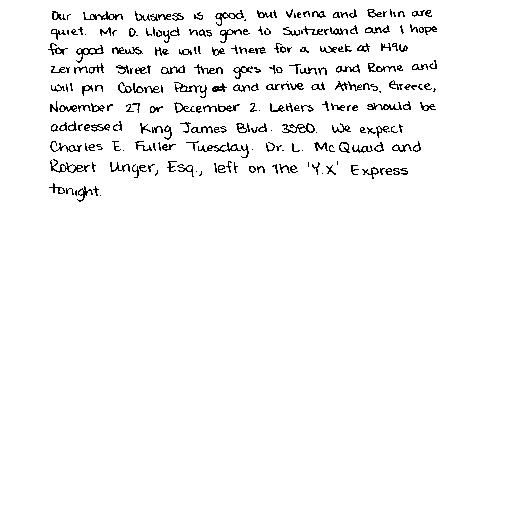 Our London business is good, but Vienna and Berlin are
quiet. Mr D. Lloyd has gone to Switzerland and I hope
for good news. He will be there for a week at 1496
Zermott Street and then goes to Turin and Rome and
will pin Colonel Parry and arrive at Athens, Greece,
November 27 or December 2. Letters there should be
addressed King James Blvd. 3580. We expect
Charles E. Fuller Tuesday. Dr. L. McQuaid and
Robert Unger, Esq., left on the 'Y.X' Express
tonight.